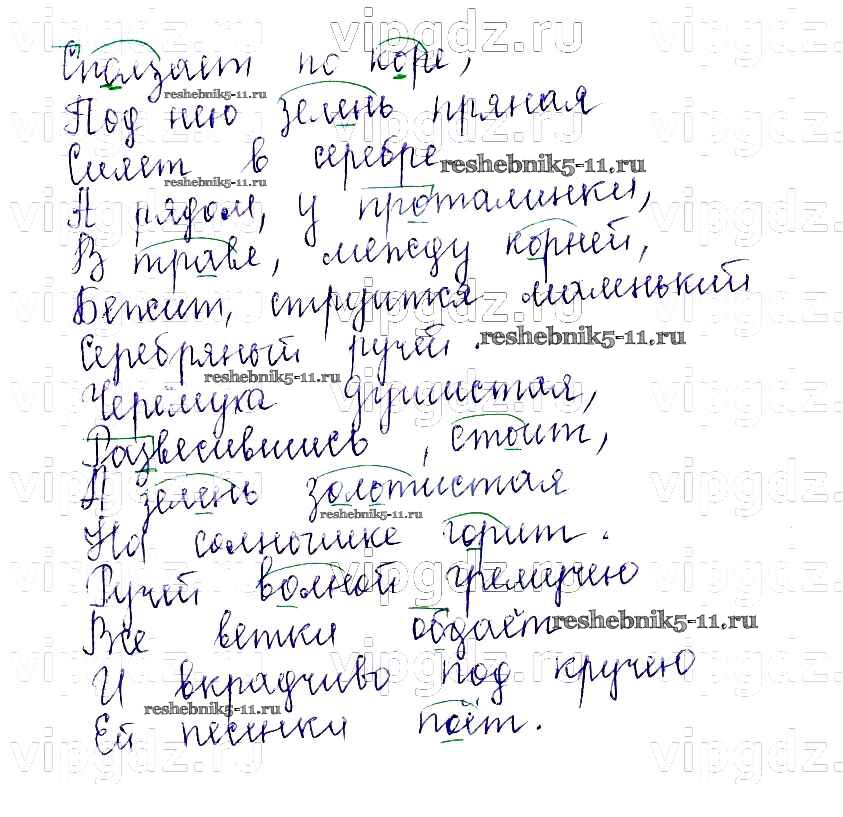 Сползает по коре,
Под нею зелень пряная
Сияет в серебре
А рядом, у проталинки,
В траве, между корней,
Бежит, струится маленький
Серебряный ручей.
Черёмуха душистая,
Развесившись, стоит,
А зелень золотистая
На солнышке горит.
Ручей волной гремучею
Все ветки обдаёт
И вкрадчиво под кручею
Ей песенки поёт.
vipgdz.ru
reshebnik5-11.ru